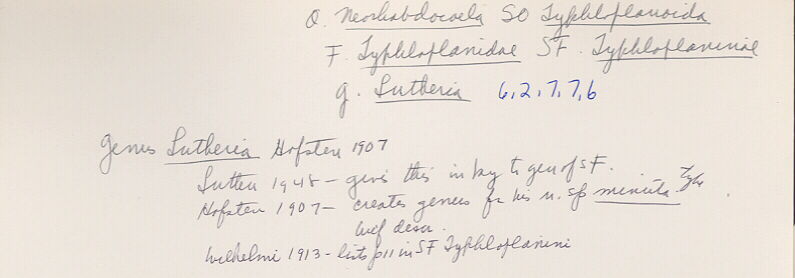 O. Neorhabdocoela SO Typhloplanoida
F. Typhloplanidae SF. Typhloplaninae
g. Lutheria 6,2,7,7,6
Genus Lutheria Hofsten 1907
Luther 1948 - gives this in key to gen of SF.
Hofsten 1907 - creates genus for his n. sp minuta. Type
brief descr.
Wilhelmi 1913 - lists p11 in SF Typhloplanini